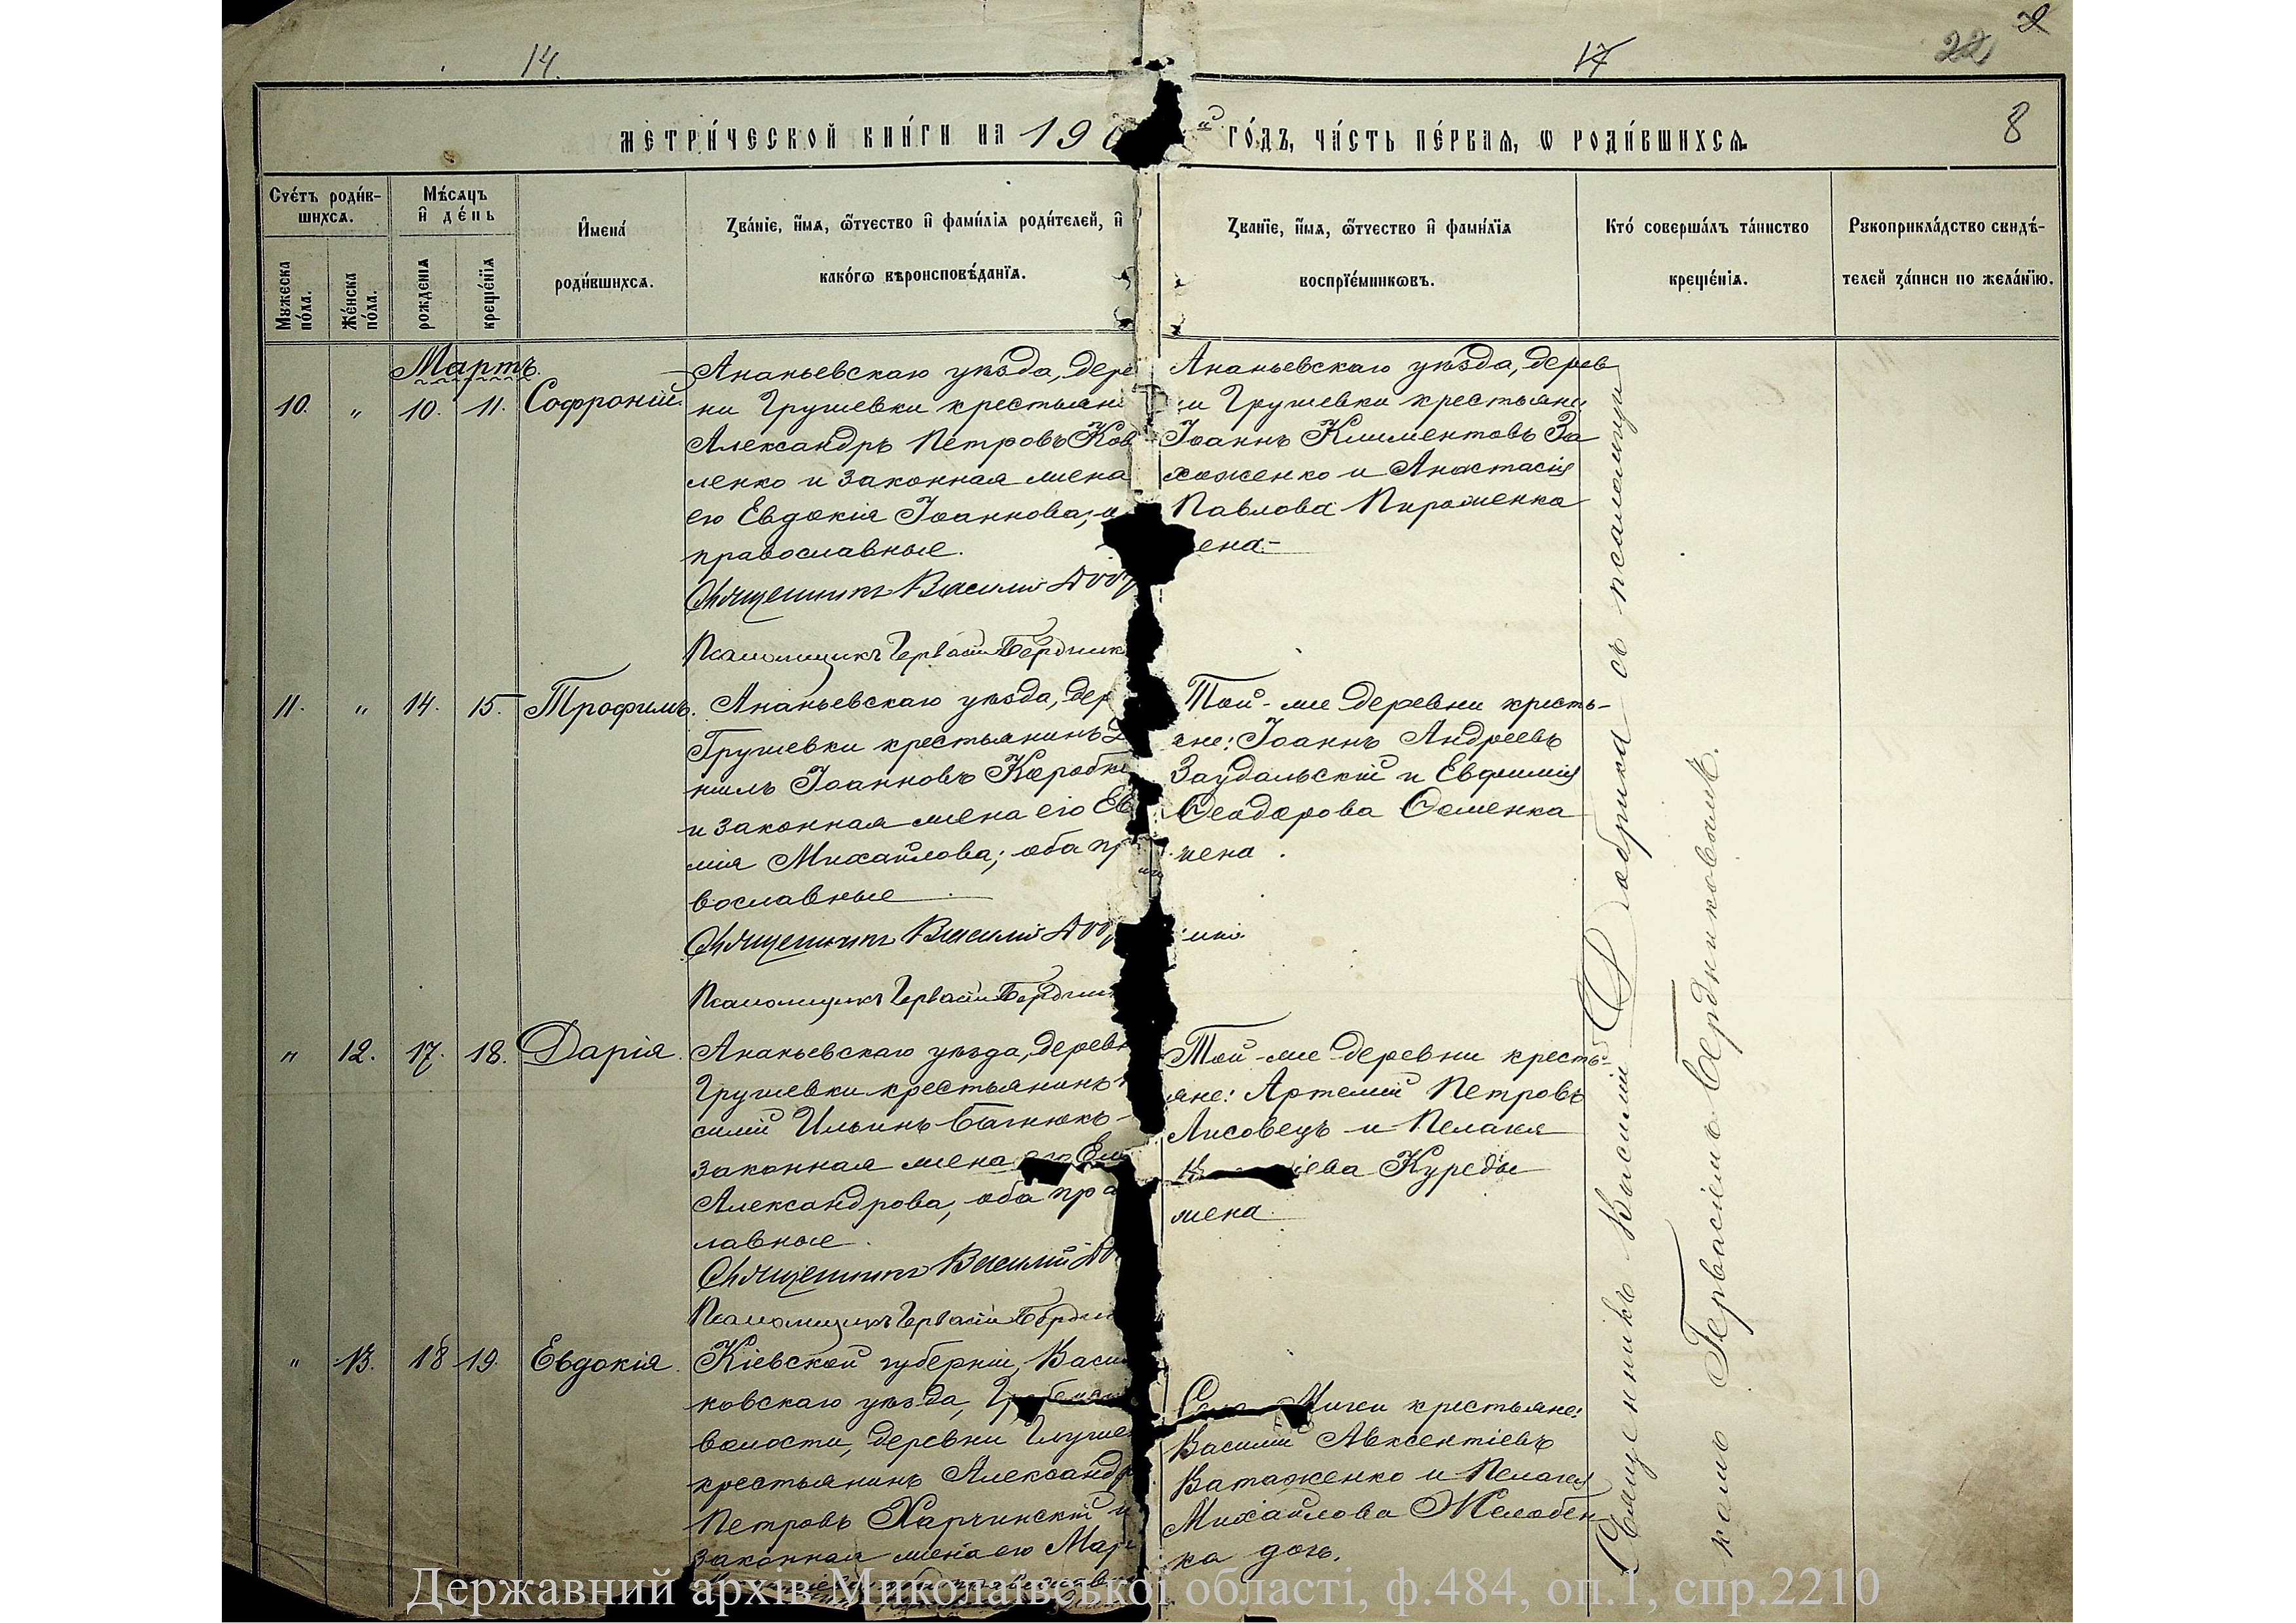 14.
17
22
8
МЕТРИ́ЧЕСКОЙ КНИ́ГИ НА 190 й ГО́ДЪ, ЧА́СТЬ ПЕ́РВАѦ, Ѡ РОДИ́ВШИХСѦ.
Сче́тъ роди́в-
шихсѧ.
Мѣ́сѧцъ
и҆ де́нь
Мꙋжеска по́ла.
Же́нска по́ла.
рожденіѧ
креще́нїѧ
И҆мена́
роди́вшихсѧ.
Зва́ніе, и҆́мѧ, ѻ҆́тчество и҆ фами́лїѧ роди́телей, и҆
како́гѡ вѣроисповѣ́данїѧ.
Зва́нїе, и҆́мѧ, ѻ҆́тчество и҆ фами́лїѧ
воспрїе́мникѡвъ.
Кто́ соверша́лъ та́инство
креще́нїѧ.
Рꙋкоприкла́дство свидѣ́-
телей за́писи по жела́нїю.
Мартъ.
10. " 10. 11. Софроній.
Ананьевскаго уѣзда, дере
ни Грушевки крестьян
Александръ Петровъ Ков
ленко и законная жена
его Евдокія Іоаннова; о
православные.
Священникъ Василій Доб
Псаломщикъ Гервасій Бердник
Ананьевскаго уѣзда, дерев
и Грушевки крестьяне
Іоаннъ Климентовъ За
хоженко и Анастасія
Павлова Пироженко
ена.-
11. " 14. 15. Трофимъ.
Ананьевскаго уѣзда, дер
Грушевки крестьянинъ
нилъ Іоанновъ Коробк
и законная жена его Ев
мія Михайлова; оба пр
вославные
Священникъ Василій Доб
Псаломщикъ Гервасій Бердни
Той-же деревни кресть-
яне: Іоаннъ Андреевъ
Заудальскій и Евфимія
Ѳеодорова Осменка
жена.
" 12. 17. 18. Дарія.
Ананьевскаго уѣзда, деревн
Грушевки крестьянинъ
силій Ильинъ Багнюкъ
законная жена его Ел
Александрова, оба пра
лавные.
Священникъ Василій До
Псаломщикъ Гервасій Бердн
Той-же деревни кресть-
яне: Артемій Петровъ
Лисовецъ и Пелагея
іева Куреды
жена.
" 13. 18 19. Евдокія.
Кіевской губерніи, Васи
ковскаго уѣзда, Гребен
волости, деревни Глуше
крестьянинъ Александр
Петровъ Харчинскій и
законная жена его Мар
Мигеи крестьяне:
Василій Авксентіевъ
Ватаженко и Пелагея
Михайлова Желобен
ка дочь.
Священникъ Василій Добрика съ псаломщи
комъ Гервасіемъ Бердниковымъ.
Державний архів Миколаївської області, ф.484, оп.1, спр.2210